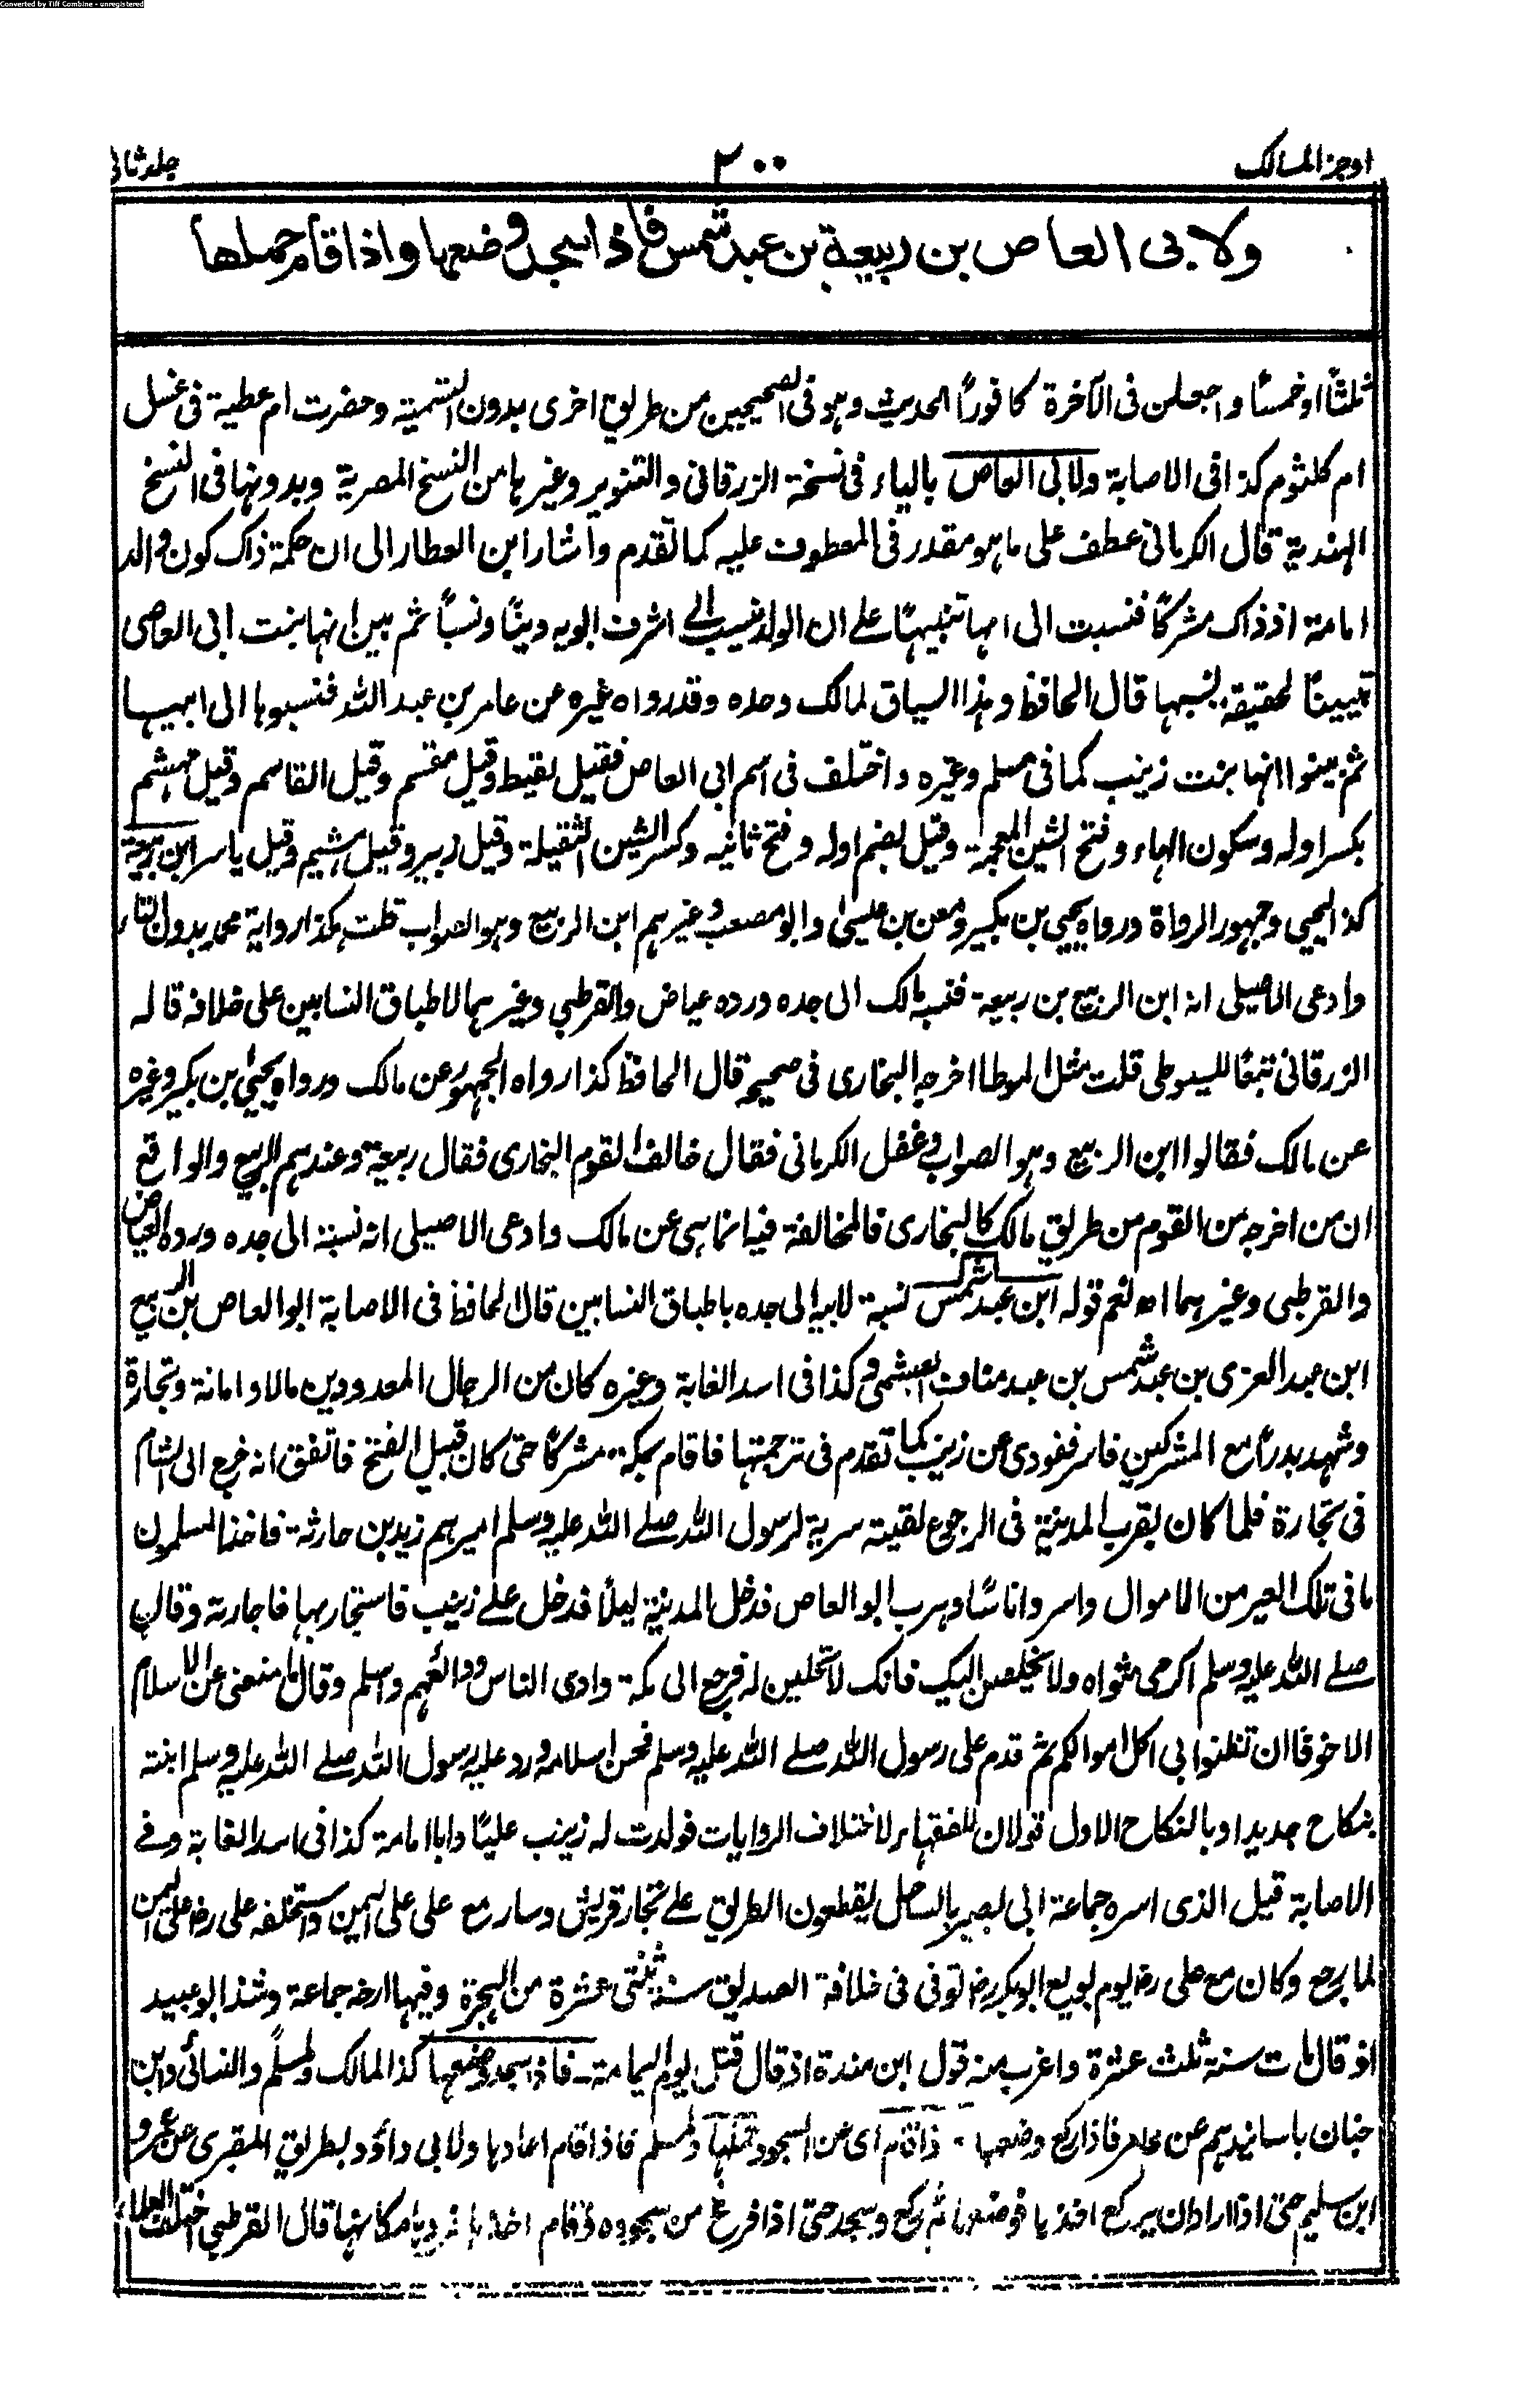 Converted by Tiff Combine - unregistered
اوجز المسالك
٢٠٠
جلد ثانی
ولابى العاص بن ربيعة بن عبد شمس فاذا سجد وضعها واذا قام حملها
ثلثًا او خمسًا واجعلن فى الآخرة كافورًا الحديث وهو فى الصحيحين من طريق اخرى بدون التسمية وحضرت ام عطية فى غسل
ام كلثوم كذا فى الاصابة ولابى العاص بالياء فى نسخة الزرقانى والتنوير وغيرها من النسخ المصرية وبدونها فى النسخ
الهندية قال الكرمانى عطف على ما هو مقدر فى المعطوف عليه كما تقدم واشار ابن العطار الى ان حكمة ذاك كون والد
امامة اذ ذاك مشركًا فنسبت الى امها تنبيهًا على ان الولد ينسب الى اشرف ابويه دينًا ونسبًا ثم بين انها بنت ابى العاص
تبيينًا لحقيقة نسبها قال الحافظ وهذا السياق لمالك وحده وقد رواه غيره عن عامر بن عبد الله فنسبوها الى ابيها
ثم بينوا انها بنت زينب كما فى مسلم وغيره واختلف فى اسم ابى العاص فقيل لقيط وقيل مقسم وقيل القاسم وقيل مهشم
بكسر اوله وسكون الهاء وفتح الشين المعجمة وقيل بضم اوله وفتح ثانيه وكسر الشين الثقيلة وقيل زبير وقيل هشيم وقيل ياسر ابن ربيعة
كذا ليحيى وجمهور الرواة ورواه يحيى بن بكير ومعن بن عيسى وابو مصعب وغيرهم ابن الربيع وهو الصواب قلت هكذا رواية محمد بدون التاء
وادعى الاصيلى انه ابن الربيع بن ربيعة فنسبه مالك الى جده ورده عياض والقرطبى وغيرهما لاطباق النسابين على خلافه قاله
الزرقانى تبعًا للسيوطى قلت مثل الموطا اخرجه البخارى فى صحيحه قال الحافظ كذا رواه الجمهور عن مالك ورواه يحيى بن بكير وغيره
عن مالك فقالوا ابن الربيع وهو الصواب وغفل الكرمانى فقال خالف القوم البخارى فقال ربيعة وعندهم الربيع والواقع
ان من اخرجه من القوم من طريق مالك كالبخارى فالمخالفة فيه انما هى عن مالك وادعى الاصيلى انه نسبة الى جده ورده العياض
والقرطبى وغيرهما اه نعم قوله ابن عبد شمس نسبة لابيه الى جده باطباق النسابين قال الحافظ فى الاصابة ابو العاص بن الربيع
ابن عبد العزى بن عبد شمس بن عبد مناف العبشمى وكذا فى اسد الغابة وغيره كان من الرجال المعدودين مالا وامانة وتجارة
وشهد بدرًا مع المشركين فاسر ففودى عن زينب كما تقدم فى ترجمتها فاقام بمكة مشركًا حتى كان قبيل الفتح فاتفق انه خرج الى الشام
فى تجارة فلما كان بقرب المدينة فى الرجوع لقيته سرية لرسول الله صلى الله عليه وسلم اميرهم زيد بن حارثة فاخذ المسلمون
ما فى تلك العير من الاموال واسروا ناسًا وهرب ابو العاص فدخل المدينة ليلًا فدخل على زينب فاستجار بها فاجارته وقال
صلى الله عليه وسلم اكرمى مثواه ولا يخلصن اليك فانك لا تحلين له فرجع الى مكة وادى الناس ودائعهم واسلم وقال ما منعنى عن الاسلام
الا خوفا ان تظنوا بى اكل اموالكم ثم قدم على رسول الله صلى الله عليه وسلم فحسن اسلامه ورد عليه رسول الله صلى الله عليه وسلم ابنته
بنكاح جديد او بالنكاح الاول قولان للفقهاء لاختلاف الروايات فولدت له زينب عليًا واباامامة كذا فى اسد الغابة وفى
الاصابة قيل الذى اسره جماعة ابى بصير بالساحل يقطعون الطريق على تجار قريش وسار مع على على اليمن واستخلفه على رض على اليمن
لما رجع وكان مع على رض يوم بويع ابو بكر رض توفى فى خلافة الصديق سنة ثنتى عشرة من الهجرة وفيها ارخه جماعة وشذ ابو عبيد
اذ قال مات سنة ثلث عشرة واغرب منه قول ابن مندة اذ قال قتل يوم اليمامة فاذا سجد وضعها كذا لمالك ولمسلم والنسائى وابن
حبان باسانيدهم عن عامر فاذا ركع وضعها واذا قام اى عن السجود حملها ولمسلم فاذا قام اعادها ولابى داؤد بطريق المقبرى عن عمرو
ابن سليم حتى اذا اراد ان يركع اخذها فوضعها ثم ركع وسجد حتى اذا فرغ من سجوده وقام اخذها فردها مكانها قال القرطبى اختلف العلماء